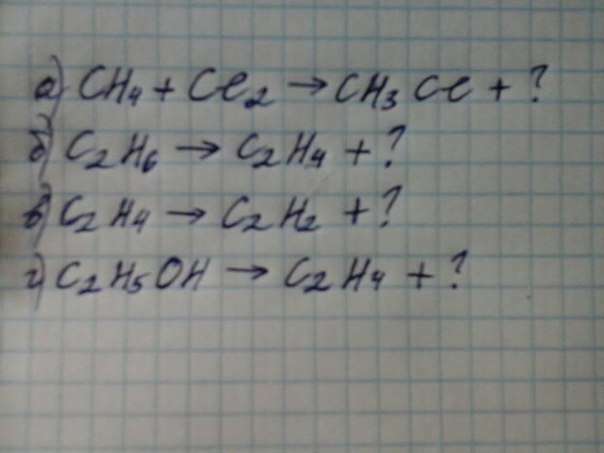 а) CH₄ + Cl₂ → CH₃Cl + ?
б) C₂H₆ → C₂H₄ + ?
в) C₂H₄ → C₂H₂ + ?
г) C₂H₅OH → C₂H₄ + ?